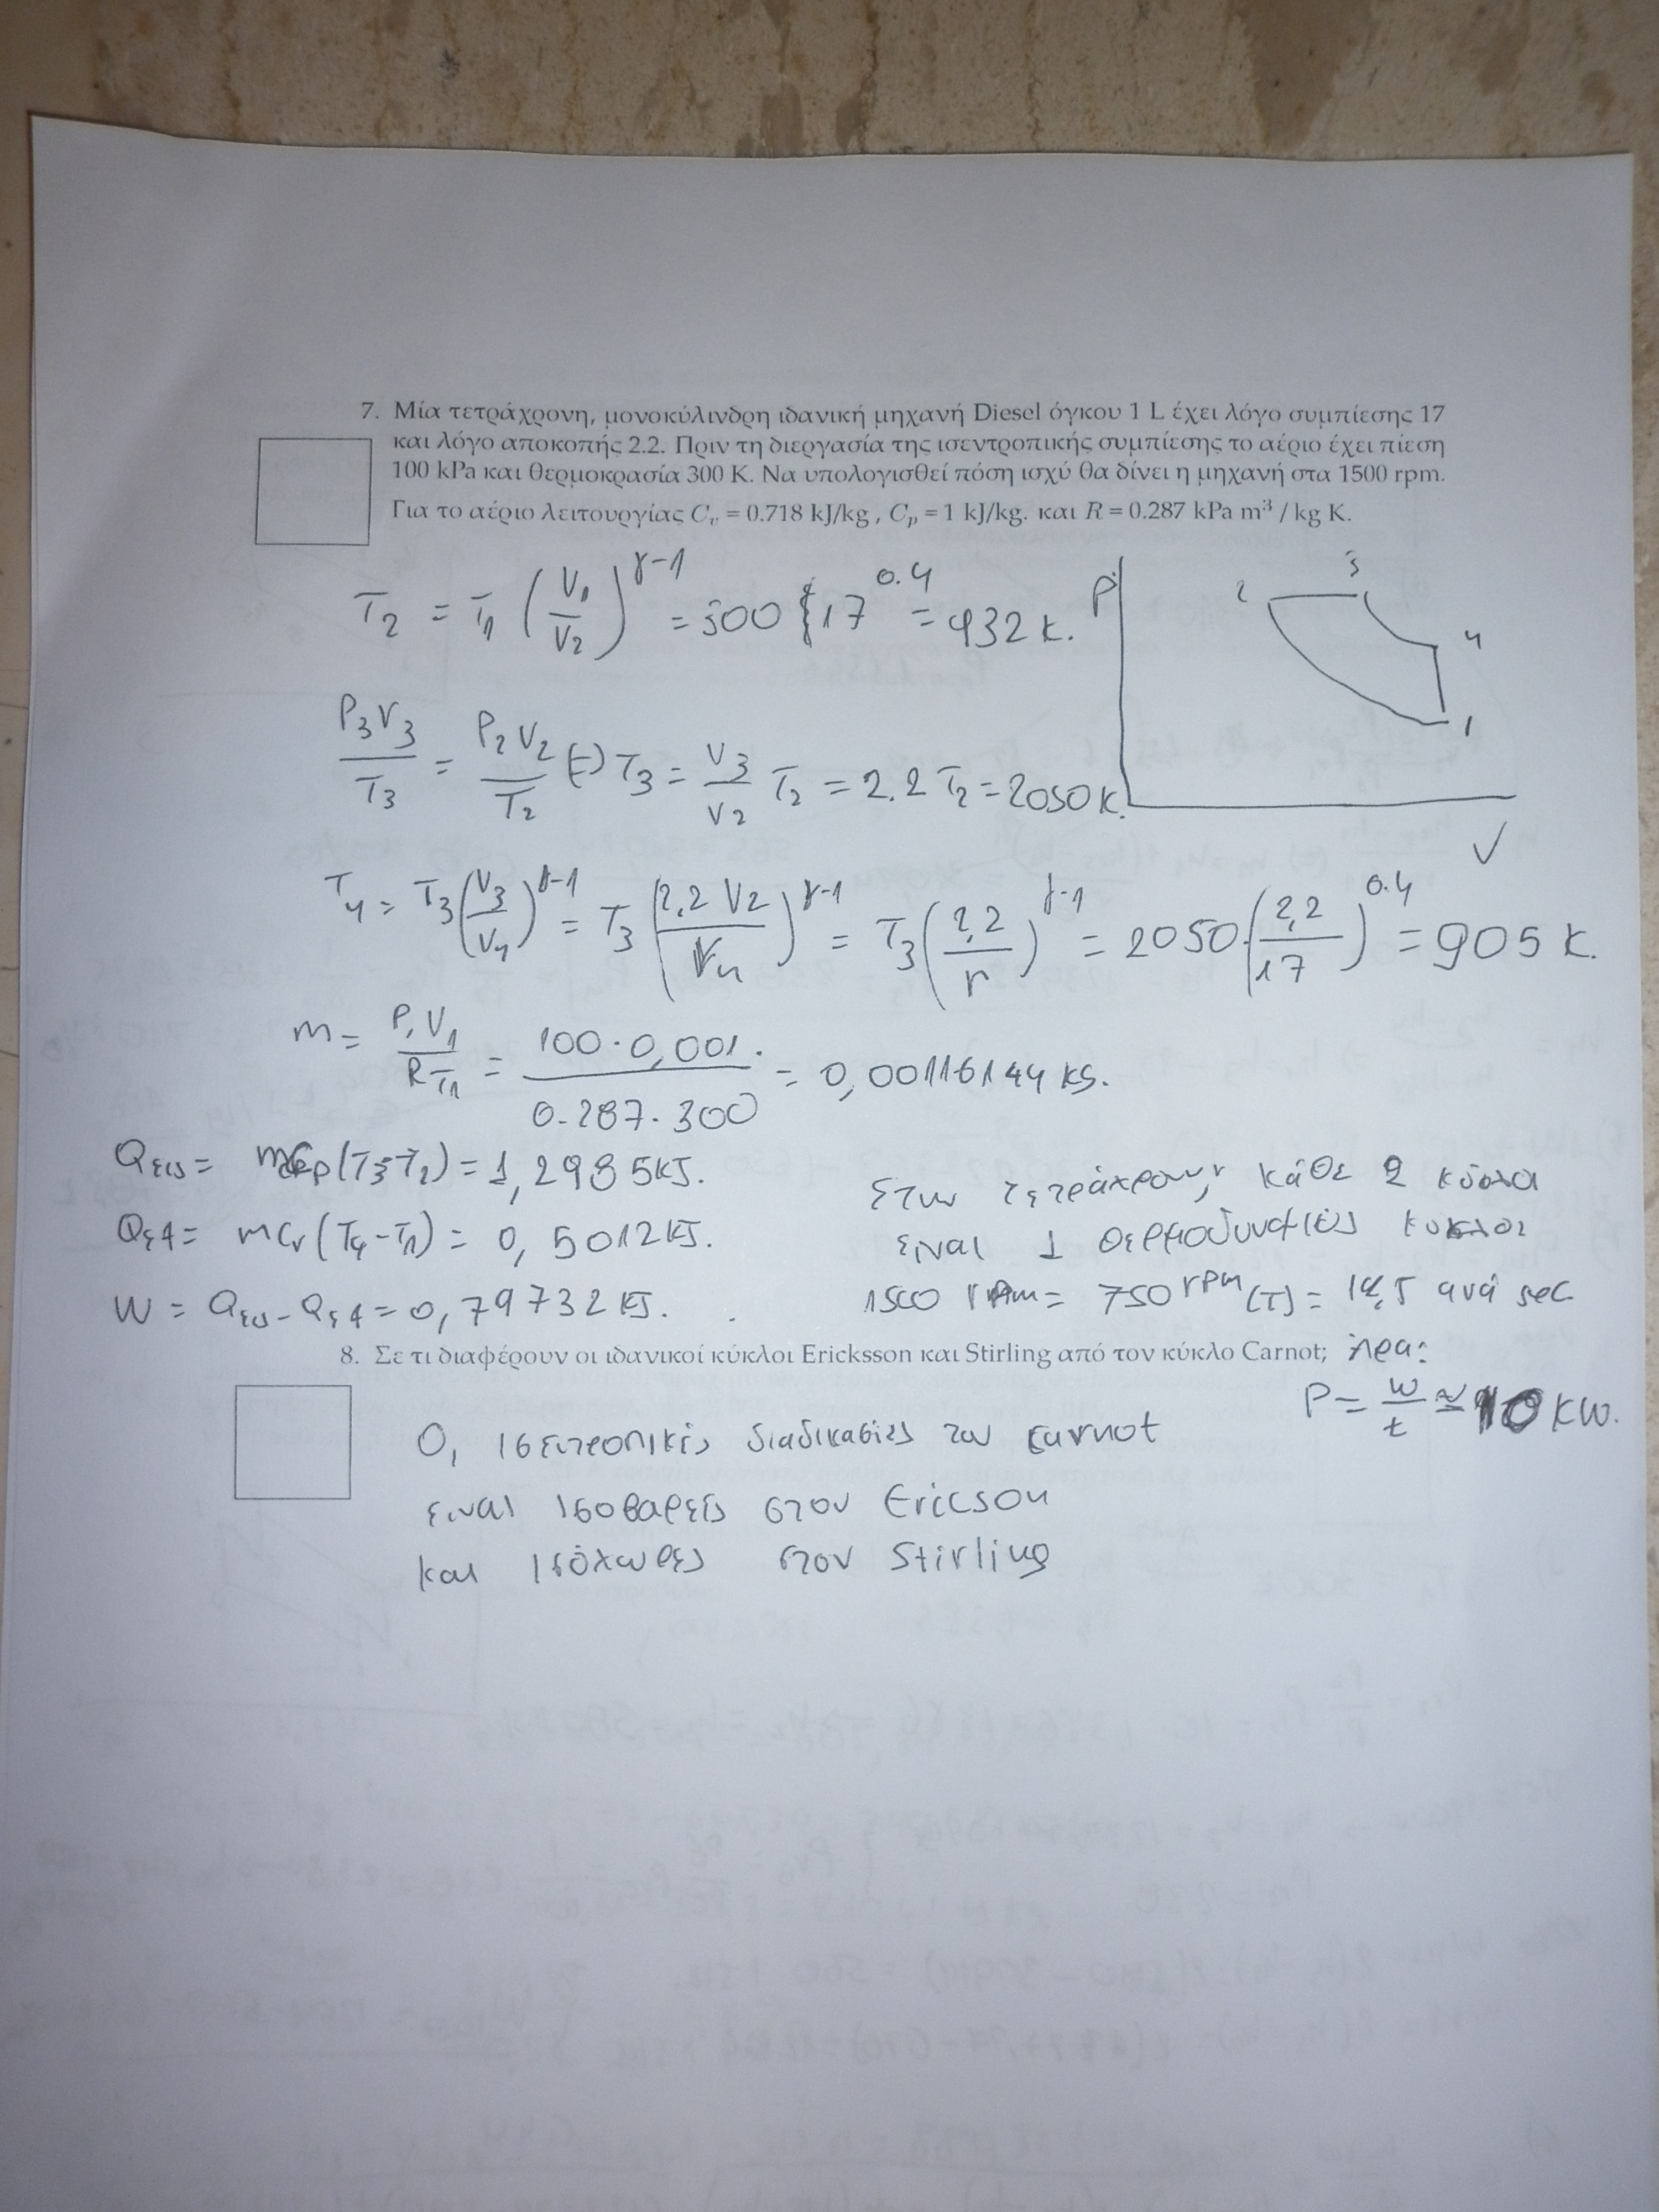 7. Μία τετράχρονη, μονοκύλινδρη ιδανική μηχανή Diesel όγκου 1 L έχει λόγο συμπίεσης 17
και λόγο αποκοπής 2.2. Πριν τη διεργασία της ισεντροπικής συμπίεσης το αέριο έχει πίεση
100 kPa και θερμοκρασία 300 K. Να υπολογισθεί πόση ισχύ θα δίνει η μηχανή στα 1500 rpm.
Για το αέριο λειτουργίας C_v = 0.718 kJ/kg , C_p = 1 kJ/kg. και R = 0.287 kPa m³ / kg K.
T2 = T1 (V1/V2)^γ-1 = 300 17^0.4 = 932 K.
P
2
3
4
1
V
P3V3/T3 = P2V2/T2 (=) T3 = V3/V2 T2 = 2.2 T2 = 2050 K.
T4 = T3 (V3/V4)^γ-1 = T3 (2.2 V2/V4)^γ-1 = T3 (2,2/r)^γ-1 = 2050 · (2,2/17)^0.4 = 905 K.
m = P1V1/RT1 = 100·0,001/0.287·300 = 0,00116144 kg.
Qεισ = mCp(T3-T2) = 1,2985 KJ.
Qεξ = mCv(T4-T1) = 0,5012 KJ.
W = Qεισ - Qεξ = 0,79732 KJ.
Στην τετράχρονη, κάθε 2 κύκλοι
είναι 1 θερμοδυναμικός κύκλος
1500 rpm = 750 rpm (T) = 12,5 ανά sec
Άρα:
P = W/t ≃ 10 KW.
8. Σε τι διαφέρουν οι ιδανικοί κύκλοι Ericksson και Stirling από τον κύκλο Carnot;
Οι ισεντροπικές διαδικασίες του Carnot
είναι ισοβαρείς στον Ericson
και ισόχωρες στον Stirling